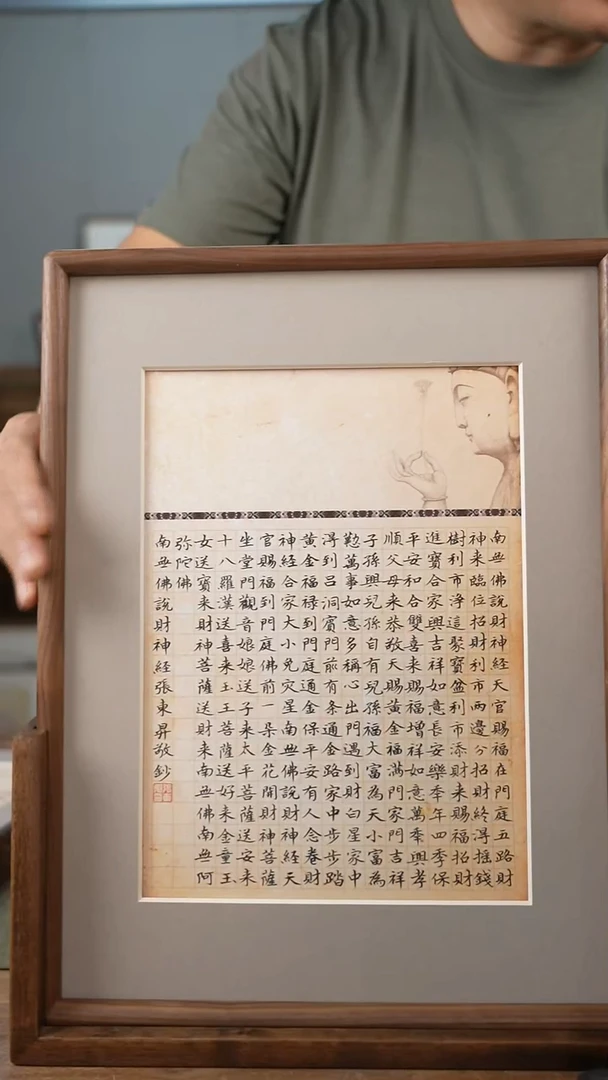 南無佛說財神經天官賜福在門庭五路財
神来臨位招財利市兩邊分招財終淂搖錢
樹利市淨這聚寳盆利市添財来賜福招財
進寳合家興吉祥如意長安樂季年四季保
平安和合雙喜来賜福增祥如意萬事興孝
順父母来恭敬天賜黄金福满門家門吉祥
子孫興兒孫自有兒孫福大富為天小富為
勤萬事如意多稱心出門遇到財白星家中
淂到吕洞賓門前有条通金路家中步步踏
黄金福禄到門庭通金保平安有人念卷財
神經合家大小免灾星南無佛說財神經天
官賜福到門庭佛前一朵金花開財神菩薩
坐堂門觀音娘娘送子来太平菩薩送安来
十八羅漢送喜来玉王菩薩送好来金童玉
女送寳来財神菩薩送財来南無佛南無阿
弥陀佛
南無佛說財神經張東昇敬鈔